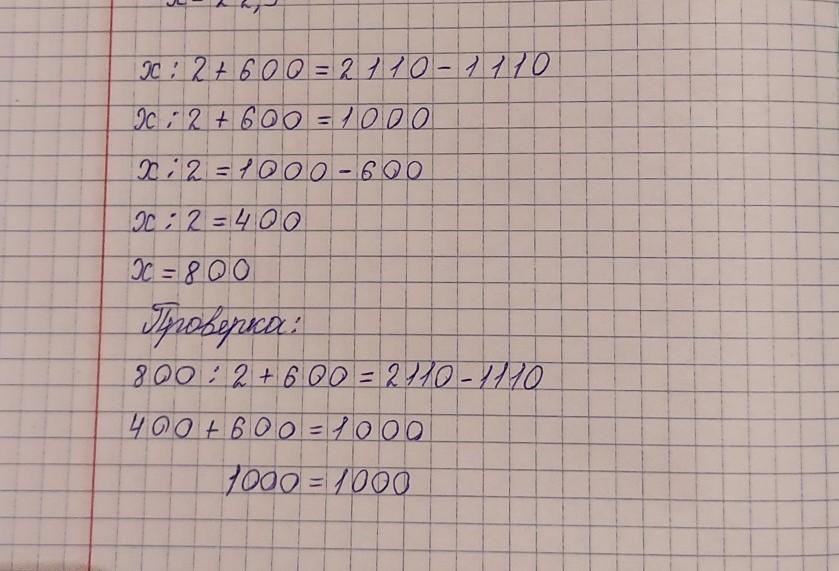 x : 2 + 600 = 2110 - 1110
x : 2 + 600 = 1000
x : 2 = 1000 - 600
x : 2 = 400
x = 800
Проверка:
800 : 2 + 600 = 2110 - 1110
400 + 600 = 1000
1000 = 1000